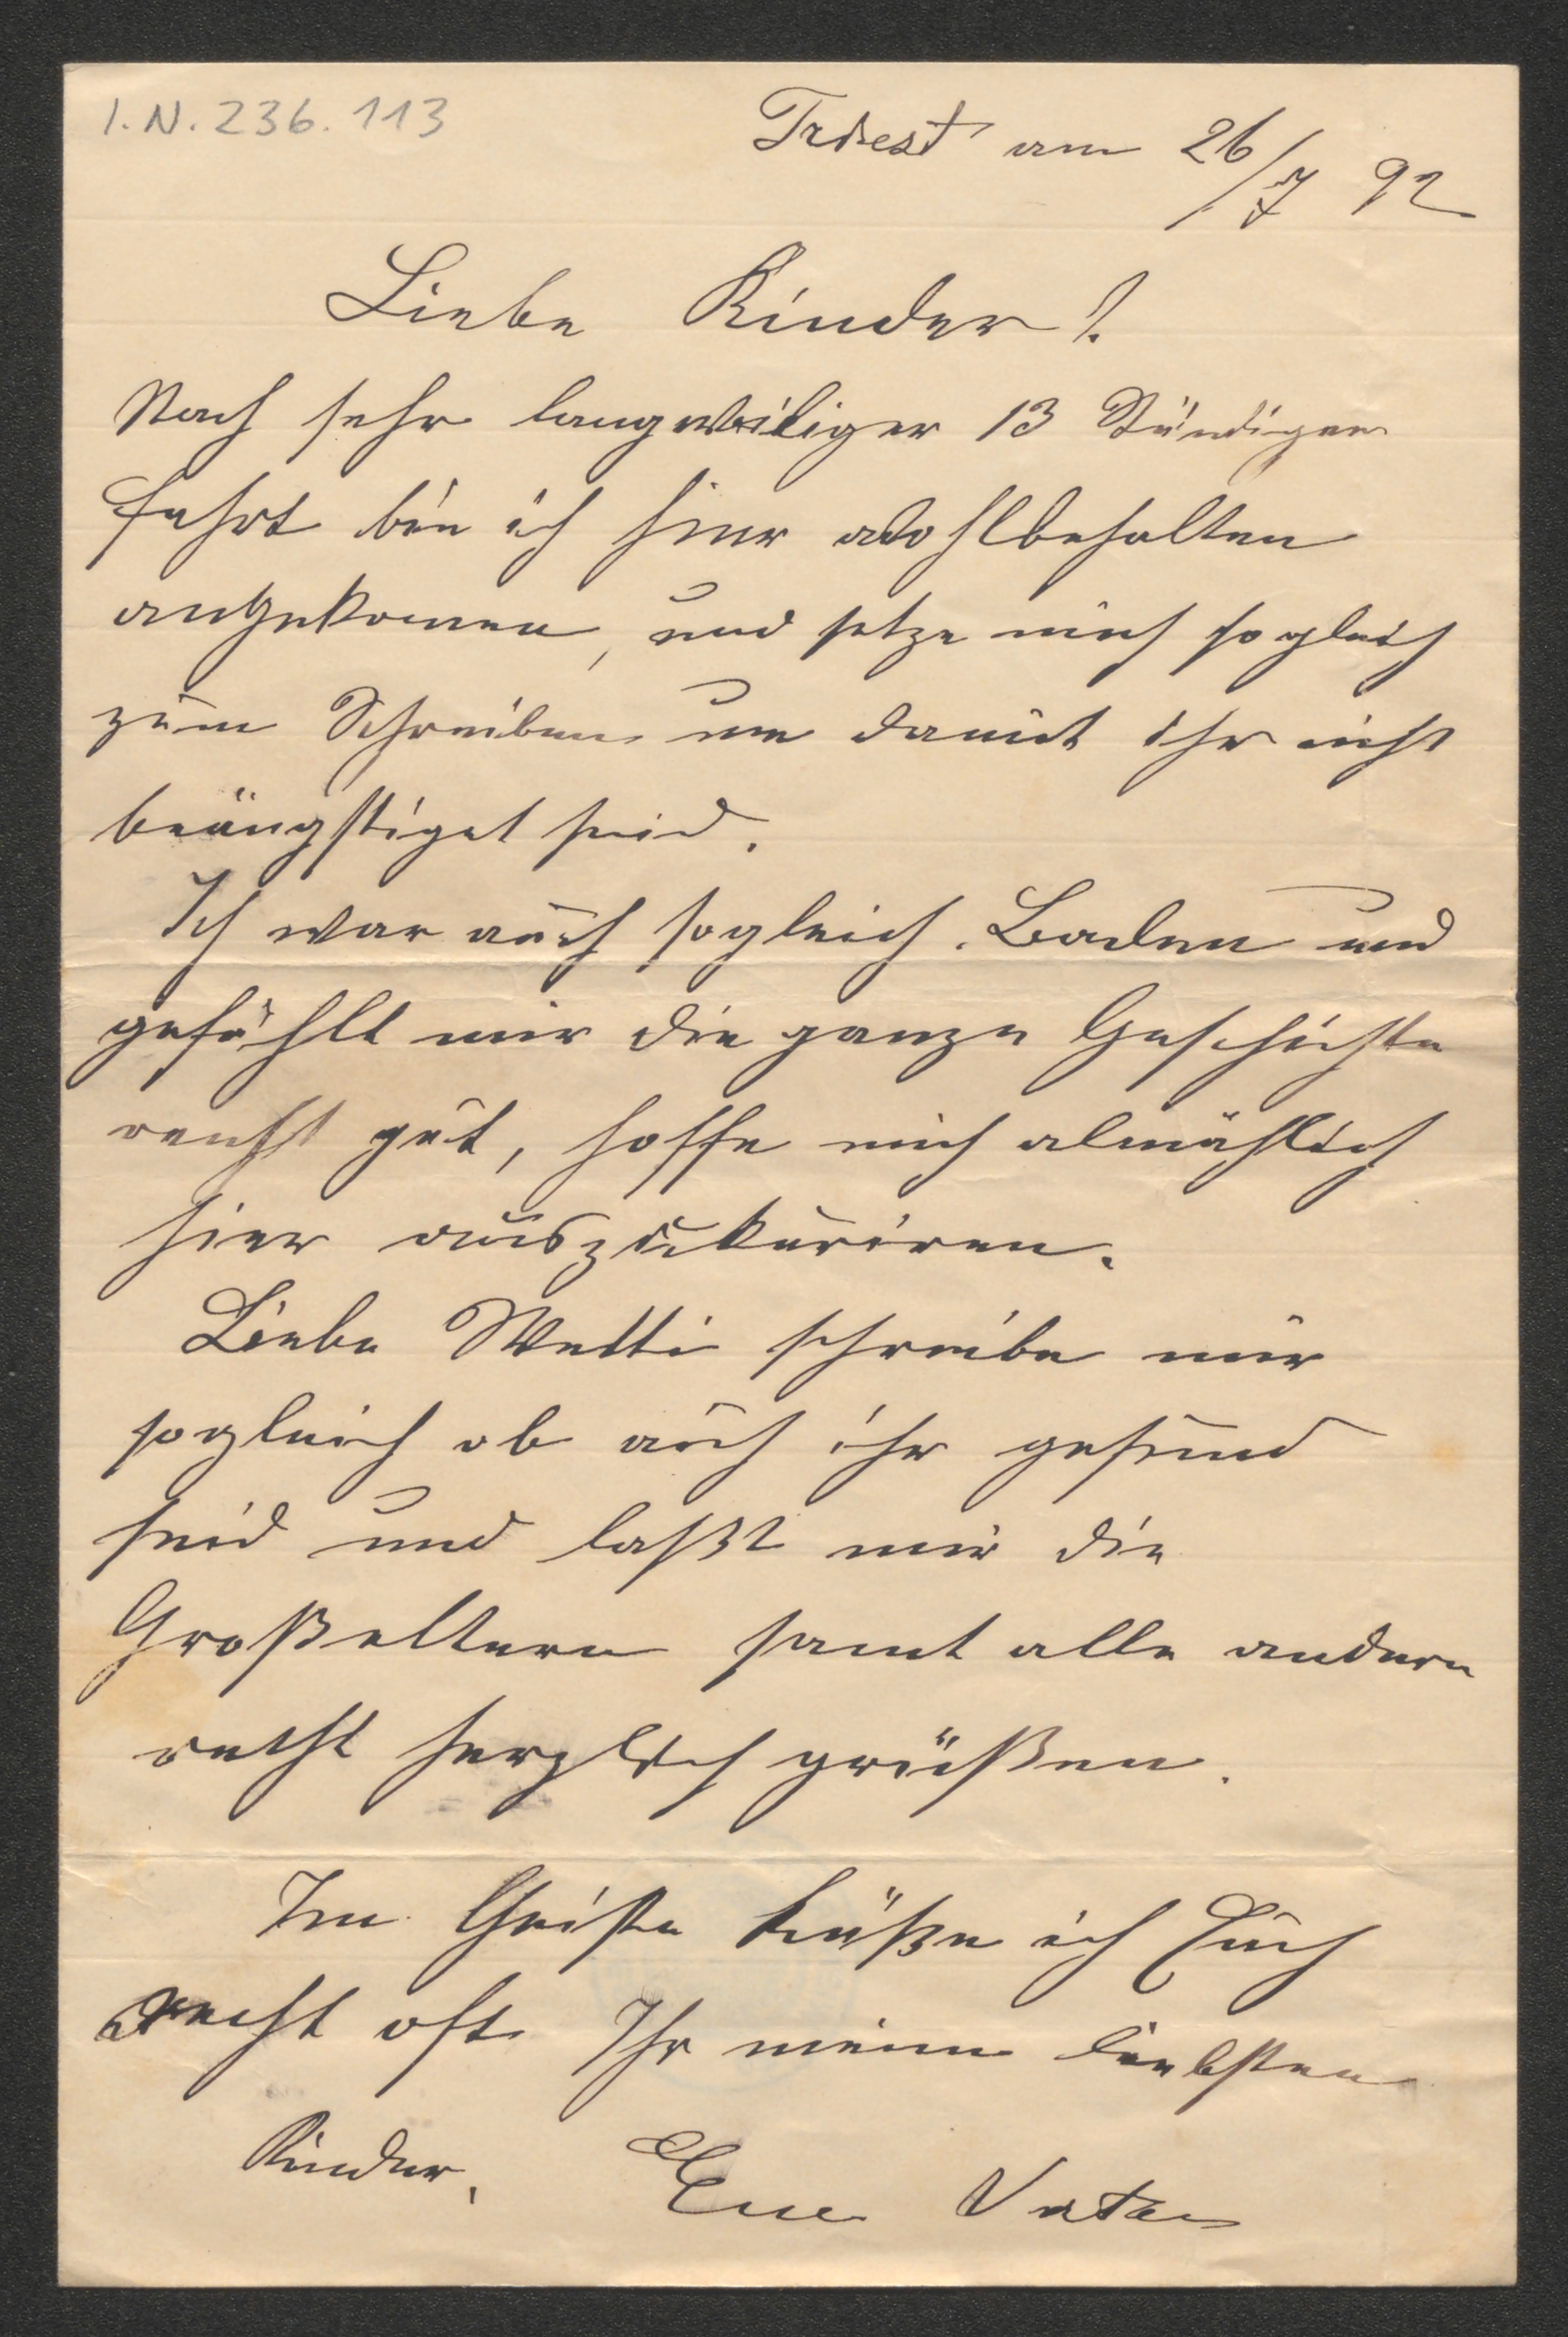 I.N. 236.113
Triest am 26/7 92
Liebe Kinder!
Nach sehr langweiliger 13 Stündigen
Fahrt bin ich hier wohlbehalten
angekomen, und setze mich sogleich
zum Schreiben um damit ihr nicht
beängstiget seid.
Ich war auch sogleich Baden und
gefählt mir die ganze Geschichte
recht gut, hoffe mich almählich
hier auszukuriren.
Liebe Metti schreibe mir
sogleich ob auch ihr gesund
seid und laßt mir die
Großeltern samt alle andern
recht herzlich grüßen.
Im Geiste küße ich Euch
recht oft Ihr meine liebsten
Kinder, Eue Vater